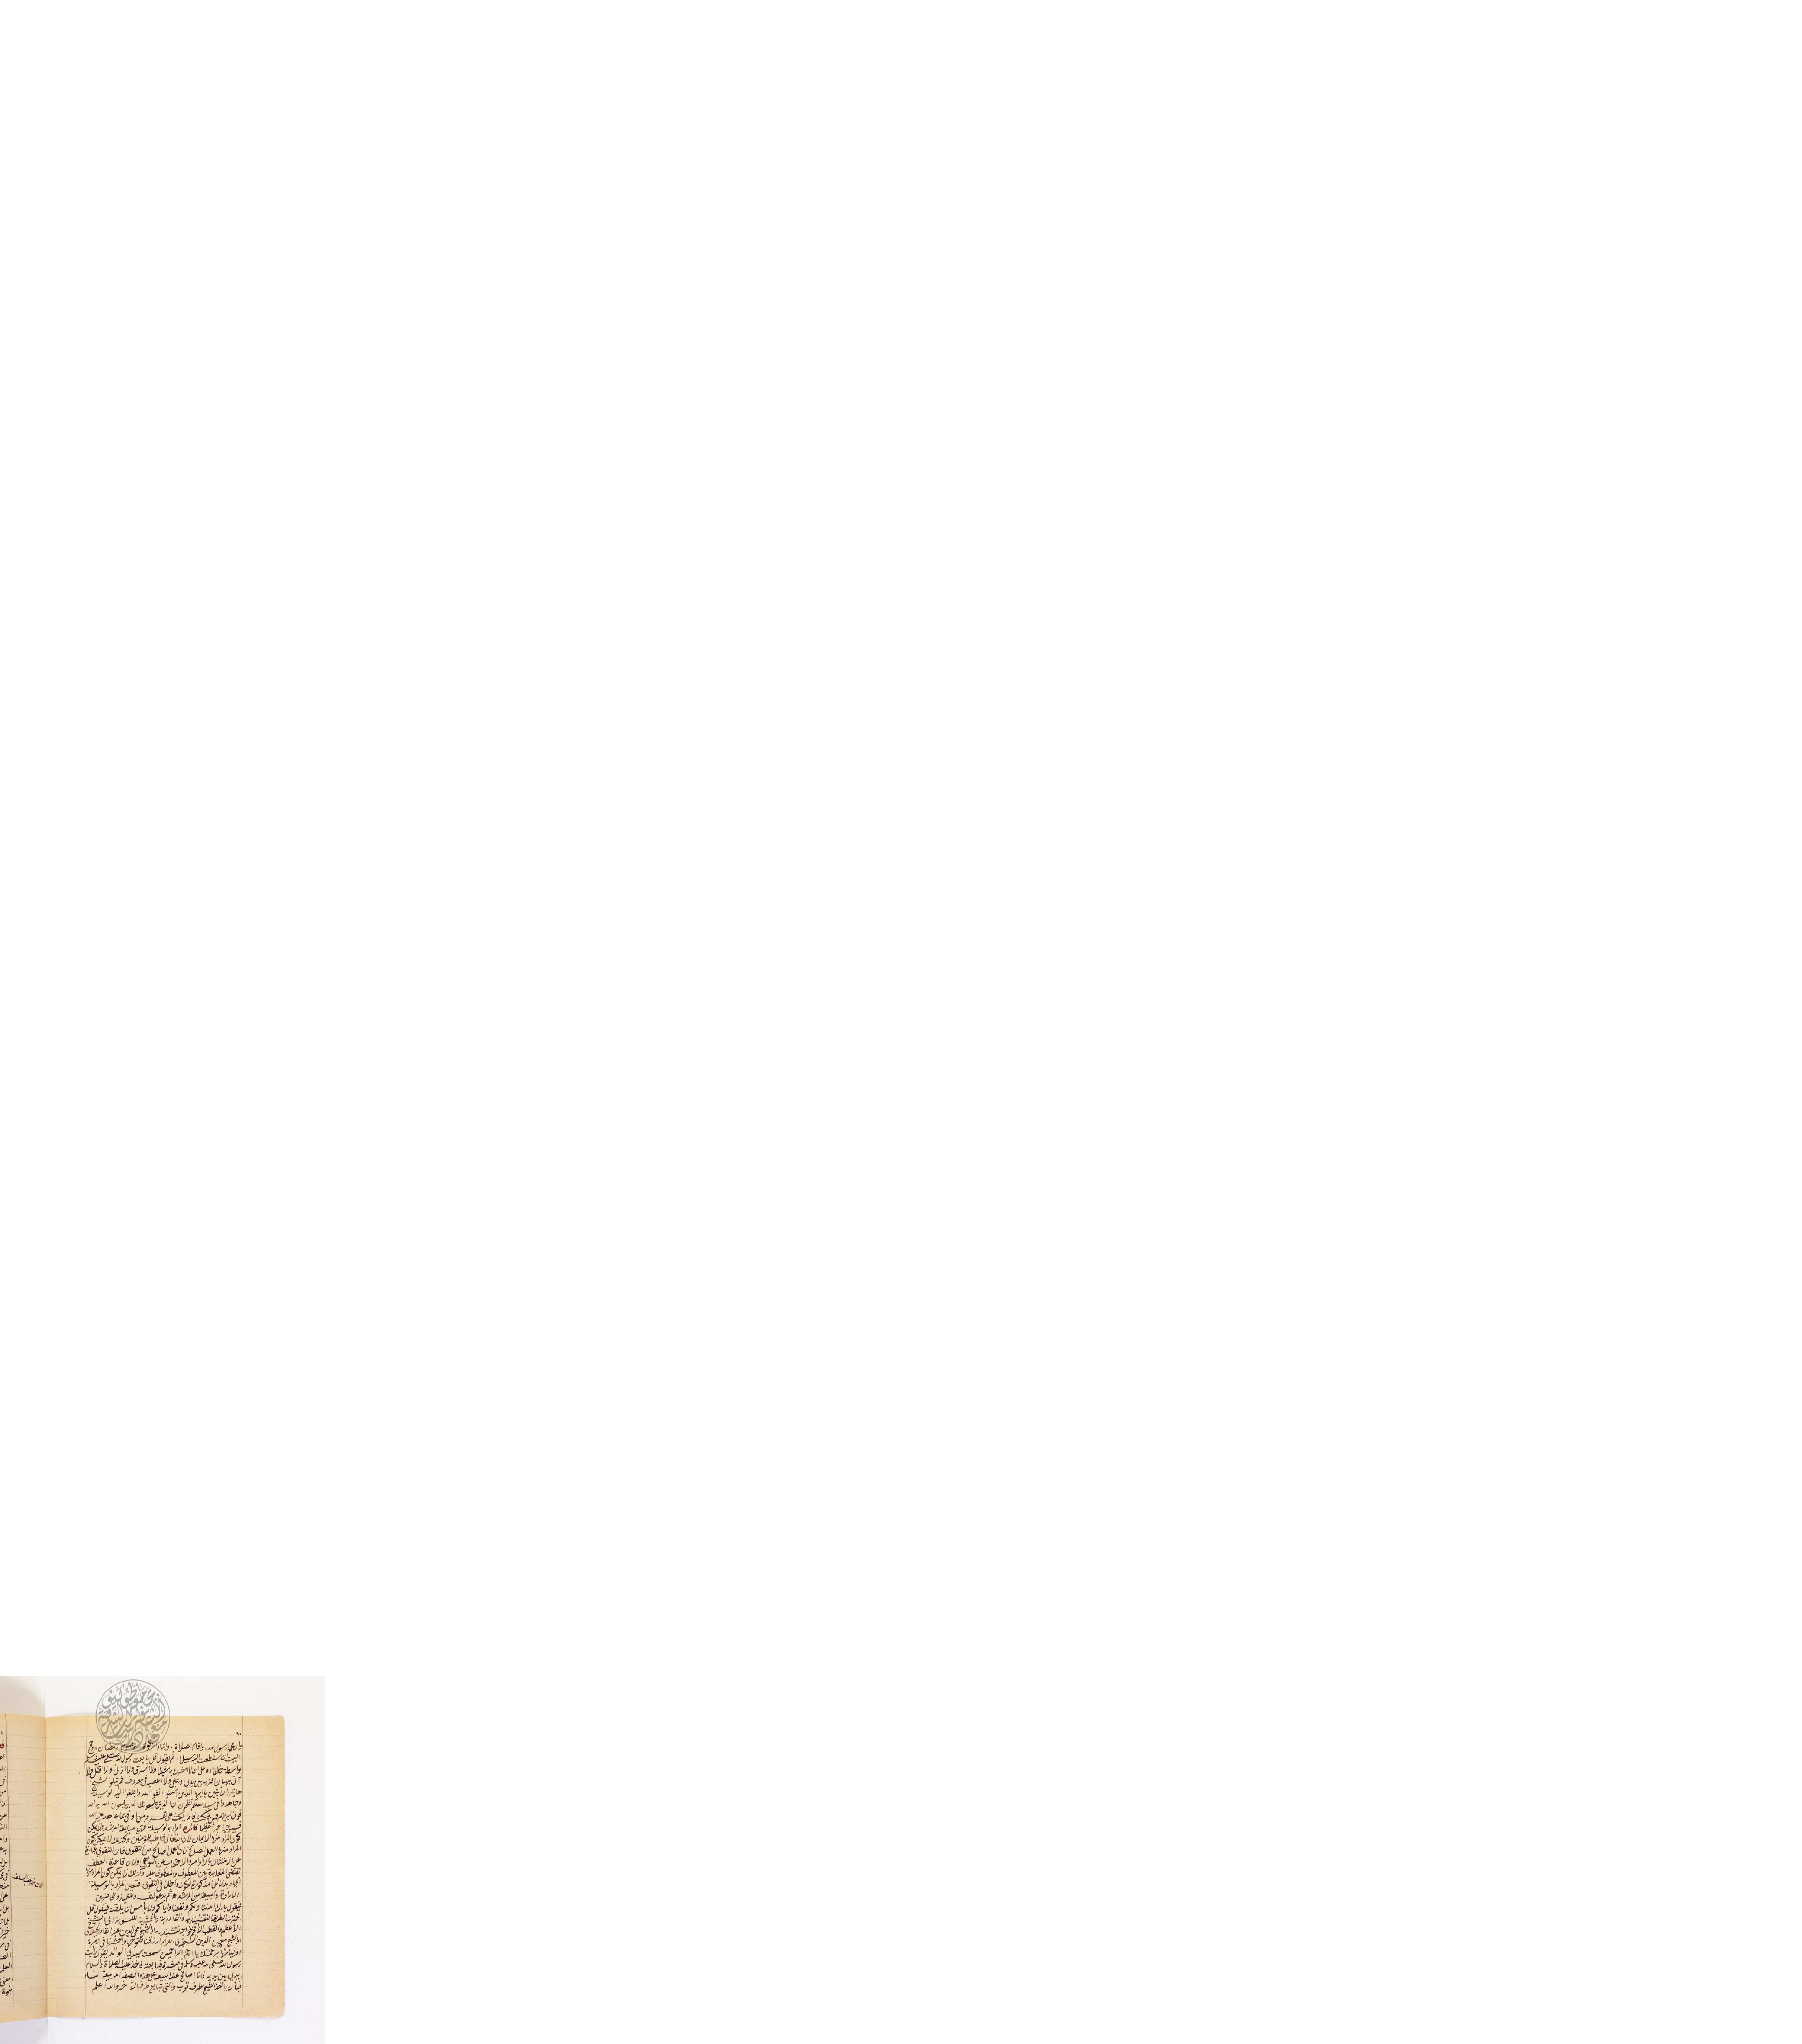 وان محمدا رسول الله واقام الصلاة وايتاء الزكاة وصوم رمضان وحج
البيت ان استطعت اليه سبيلا ثم يقول قل بايعت رسول الله صلى الله عليه وسلم
بواسطة خلفاءه على ان لا اشرك بالله شيئا ولا اسرق ولا ازني ولا اقتل ولا
آتي ببهتان افتريه بين يدي ورجلي ولا اعصيه في معروف ثم يتلو الشيخ
هاتين الآيتين يا ايها الذين آمنوا اتقوا الله وابتغوا اليه الوسيلة
وجاهدوا في سبيله لعلكم تفلحون ان الذين يبايعونك انما يبايعون الله يد الله
فوق ايديهم فمن نكث فانما ينكث على نفسه ومن اوفى بما عاهد عليه الله
فسيؤتيه اجرا عظيما فائدة المراد بالوسيلة مبايعة المرشد ولا يمكن
كون المراد منها الايمان لان الله تعالى خاطب المؤمنين وكذلك لا يمكن كون
المراد منها العمل الصالح لان العمل الصالح من التقوى فان التقوى عبارة
عن الامتثال بالاوامر والاجتناب عن النواهي ولان قاعدة العطف
تقتضي المغايرة بين المعطوف والمعطوف عليه وكذلك لا يمكن كون المراد منها
الجهاد بدلائل المذكورة لكونه داخلا في التقوى فتعين المراد بالوسيلة
الارادة والبيعة من المرشد ثم يدعو لنفسه وللتلميذ وللحاضرين
فيقول بارك الله لنا ولكم ونفعنا واياكم ولا بأس ان يلقنه فيقول قل
اخترت الطريقة النقشبندية والقادرية والچشتية المنسوبة الى الشيخ
الاعظم والقطب الافخم خواجه نقشبند او الشيخ محي الدين عبد القادر الجيلاني
او الشيخ معين الدين السنجري اللهم ارزقنا فتوحها واحشرنا في زمرة
اوليائها برحمتك يا ارحم الراحمين سمعت سيدي الوالد يقول رأيت
رسول الله صلى الله عليه وسلم في مبشرة فبايعته فاخذ عليه الصلاة والسلام
يدي بين يديه فانا اصافح عند البيعة على هذه الصفة اما بيعة النساء
فبأن ياخذ الشيخ طرف ثوب والتي تبايع طرفه الآخر والله اعلم